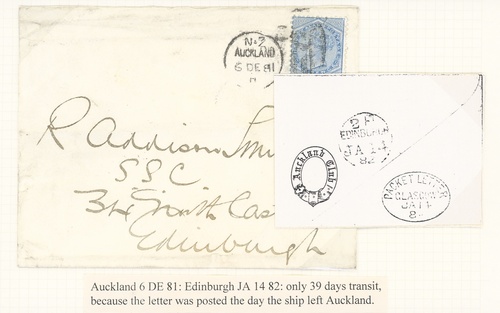 N-Z
AUCKLAND
6 DE 81
R Addison
SSC
Castle
Edinburgh
2 F
EDINBURGH
JA 14
82
Auckland Club
N.Z.
PACKET LETTER
GLASGOW
JA 14
8
Auckland 6 DE 81: Edinburgh JA 14 82: only 39 days transit,
because the letter was posted the day the ship left Auckland.